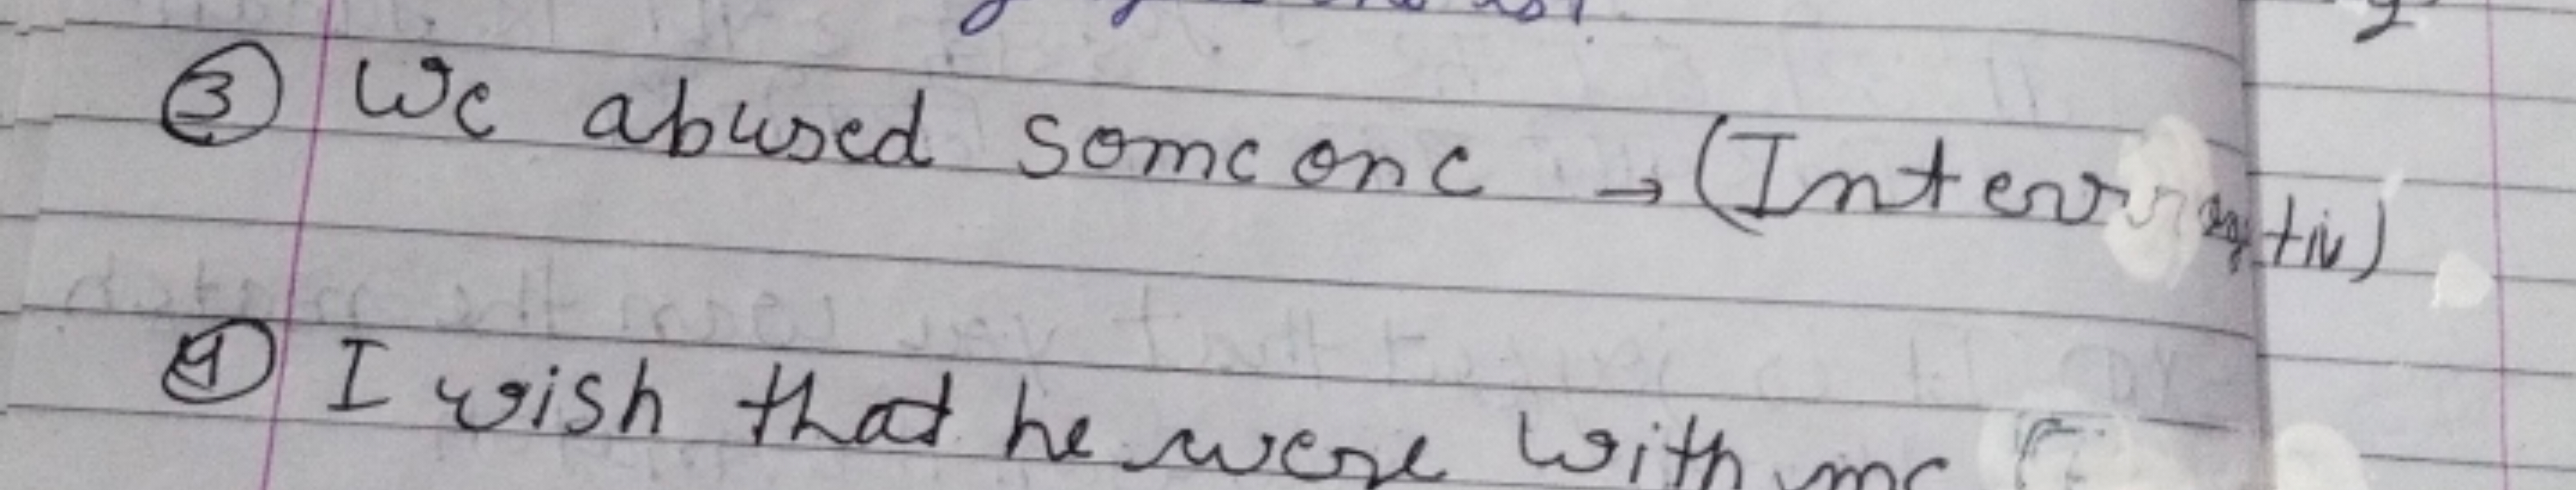 ③ We abused someone → (Interrogativ)
④ I wish that he were with me